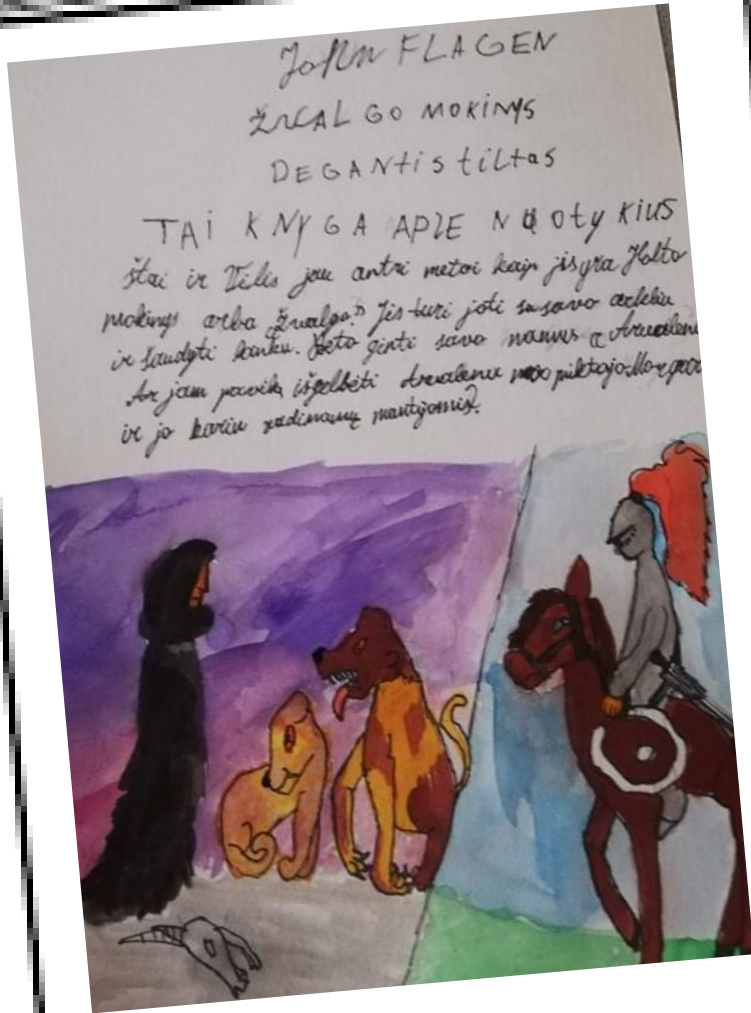 John FLAGEN
ŽvALGO MOKINYS
DEGANtis tiltas
TAi KNYGA APIE NUOtyKIUS
štai ir Vilis jau antri metai kaip jis yra Holto
mokinys arba „Žvalgo." Jis turi joti su savo arkliu
ir šaudyti lanku. Beto ginti savo namus Araluenu
Ar jam pavik išgelbėti Aralueną nuo piktojo Mor
ir jo kariu vadinamų mantijomis?